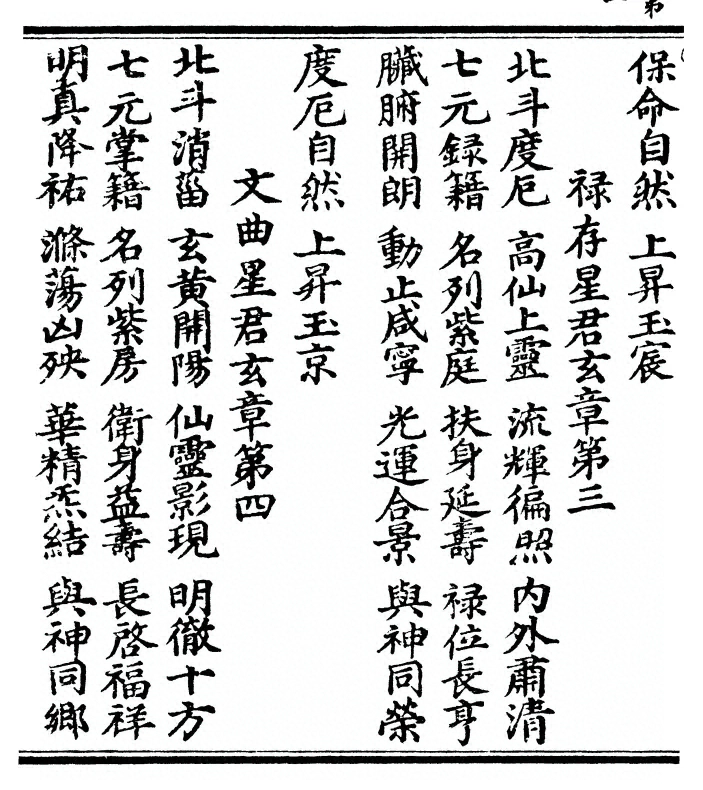 保命自然 上昇玉宸
禄存星君玄章第三
北斗度厄 高仙上靈 流輝徧照 內外肅清
七元録籍 名列紫庭 扶身延壽 禄位長亨
臟腑開朗 動止咸寧 光運合景 與神同榮
度厄自然 上昇玉京
文曲星君玄章第四
北斗消菑 玄黄開陽 仙靈影現 明徹十方
七元掌籍 名列紫房 衛身益壽 長啓福祥
明真降祐 滌蕩凶殃 華精炁結 與神同鄉